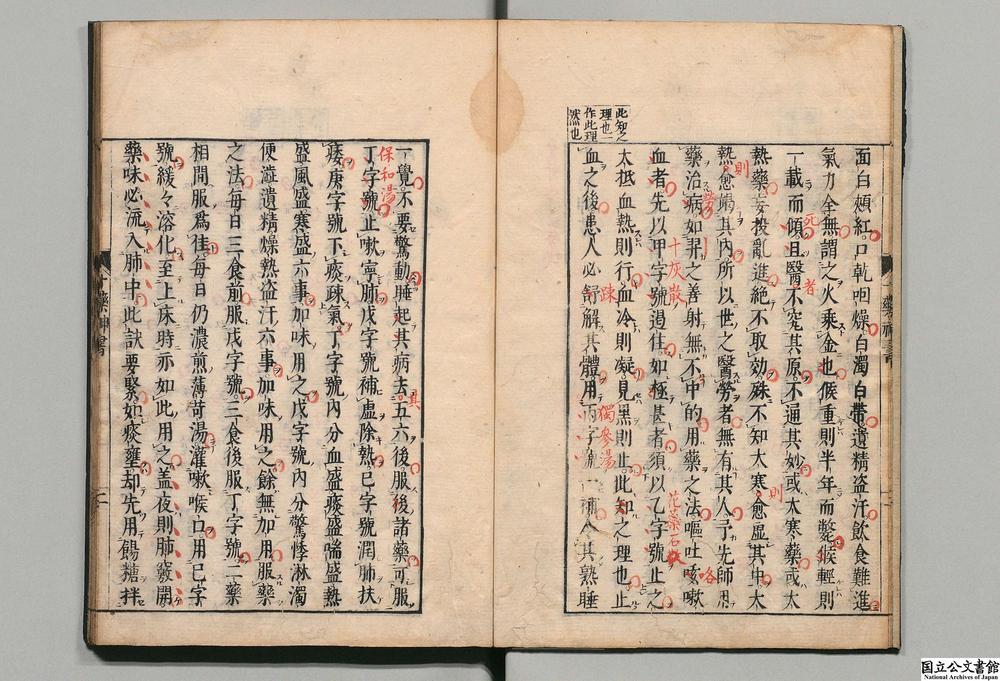 此知之
理也一
作此理
然也
面白頰紅口乾咽燥白濁白帶遺精盜汗飲食難進
氣力全無謂之火乘金也候重則半年而斃候輕則
一載而傾且醫不究其原不通其妙或太寒藥或太
死
者
熱藥妄投亂進絕不取効殊不知太寒愈虛其中太
則
熱愈竭其內所以世之醫勞者無有其人予先師用
則
藥治病如羿之善射無不中的用藥之法嘔吐咳嗽
勞
咯
血者先以甲字號遏住如極甚者須以乙字號止之
十灰散
花蘂石散
太抵血熱則行血冷則凝見黑則止此知之理也止
疎
血之後患人必舒解其體用丙字號一補令其熟睡
獨參湯
一覺不要驚動睡起其病去五六後服後諸藥可服
其
丁字號止嗽寧肺戊字號補虛除熱己字號潤肺扶
保和湯
痿庚字號下痰疎氣丁字號內分血盛痰盛喘盛熱
盛風盛寒盛六事加味用之戊字號內分驚悸淋濁
便澁遺精燥熱盜汗六事加味用之餘無加用服藥
之法每日三食前服戊字號三食後服丁字號二藥
相間服爲佳每日仍濃煎薄苛湯灌嗽喉口用己字
號緩々溶化至上床時亦如此用之盖夜則肺竅開
藥味必流入肺中此訣要緊如痰壅却先用餳糖拌
十藥神書
国立公文書館
National Archives of Japan